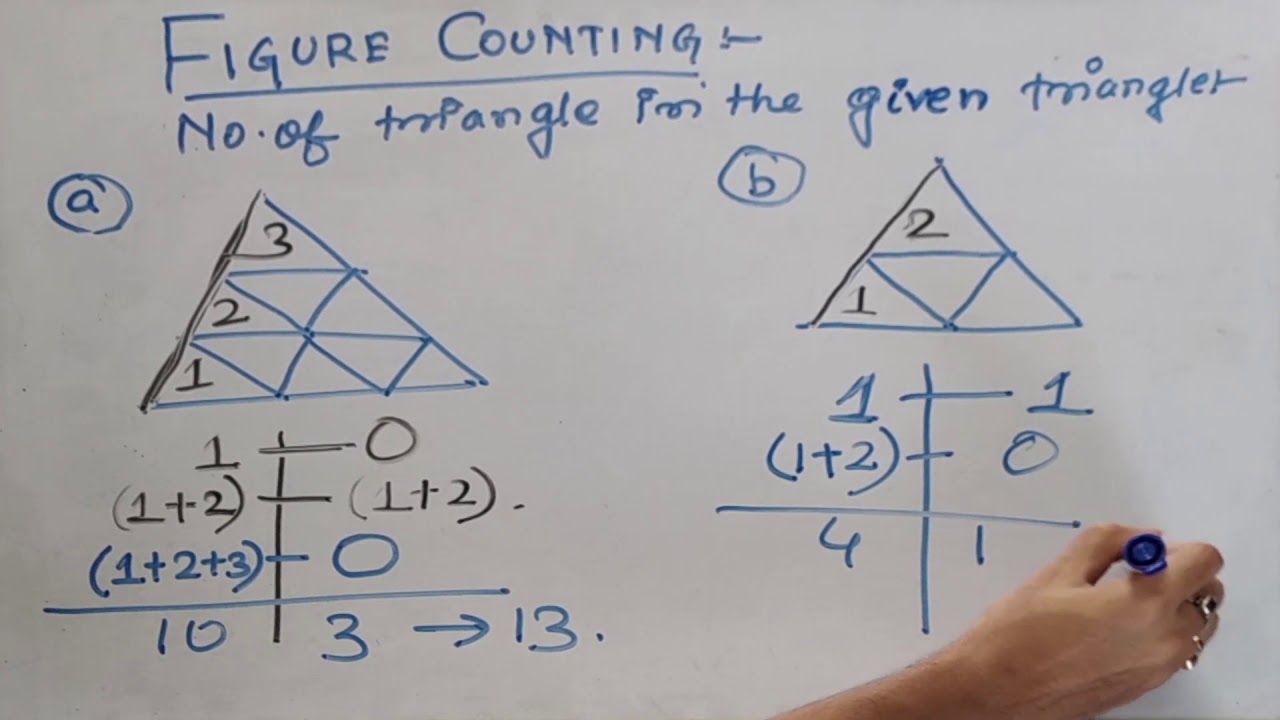 FIGURE COUNTING:-
No. of triangle in the given triangles
a
3
2
1
1 0
(1+2) (1+2).
(1+2+3) 0
10 3 → 13.
b
2
1
1 1
(1+2) 0
4 1